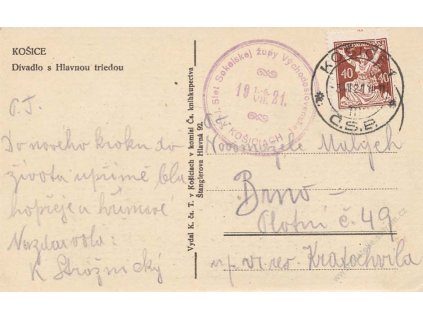 KOŠICE
Divadlo s Hlavnou triedou
P. T.
Do nového kroku do
života upřímně bla
hopřeje a hřímavé
Nazdar volá:
K Strážnický
Vydal K. ča. T. v Košiciach v komisi Čs. knihkupectva
Štanglerova Hlavná 92.
Slet Sokolskej župy Východoslovenskej
19 VIII. 21.
KOŠICIACH
40 40
KO
21
Č.S.P.
Novomanžele
Brno
Plotní č. 49
Kratochvila